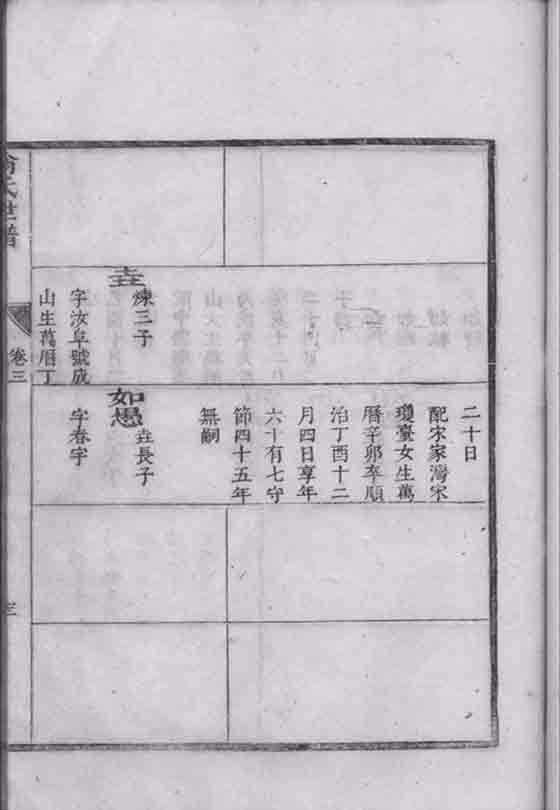 二十日
配宋家灣宋
瓊臺女生萬
曆辛卯卒順
治丁酉十二
月四日享年
六十有七守
節四十五年
無嗣
垚
煉三子
字汝阜號成
山生萬曆丁
如愚
垚長子
字春宇
氏世譜
卷三
三